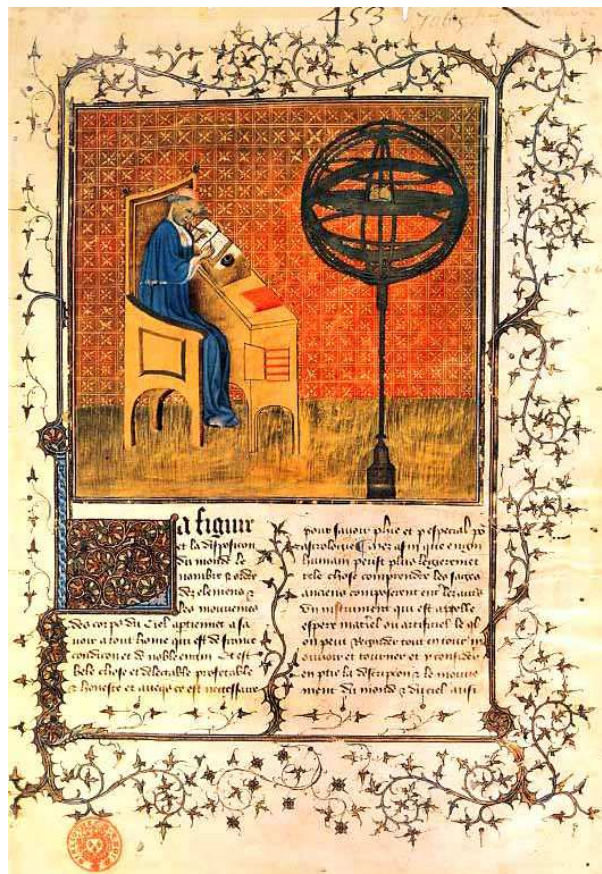 453
a figur
et la disposicon
du monde le
nombre & ordre
des elemens &
les mouvemens
des corps du ciel aptienent a sa
voir a tout home qui est de france
condicon et de noble engin Et est
bele chose et delectable profetable
& honeste et ce est necessaire
pour savoir phie et p especial po
astrologie afin que engin
humain peust plus legierement
tele chose comprendre les sages
anciens composerent
un instrument qui est appelle
espere materiel ou artificiel le ql
on peut regarder tout entour
mouvoir et tourner et
en ptie la & le mouve
ment du monde & du ciel